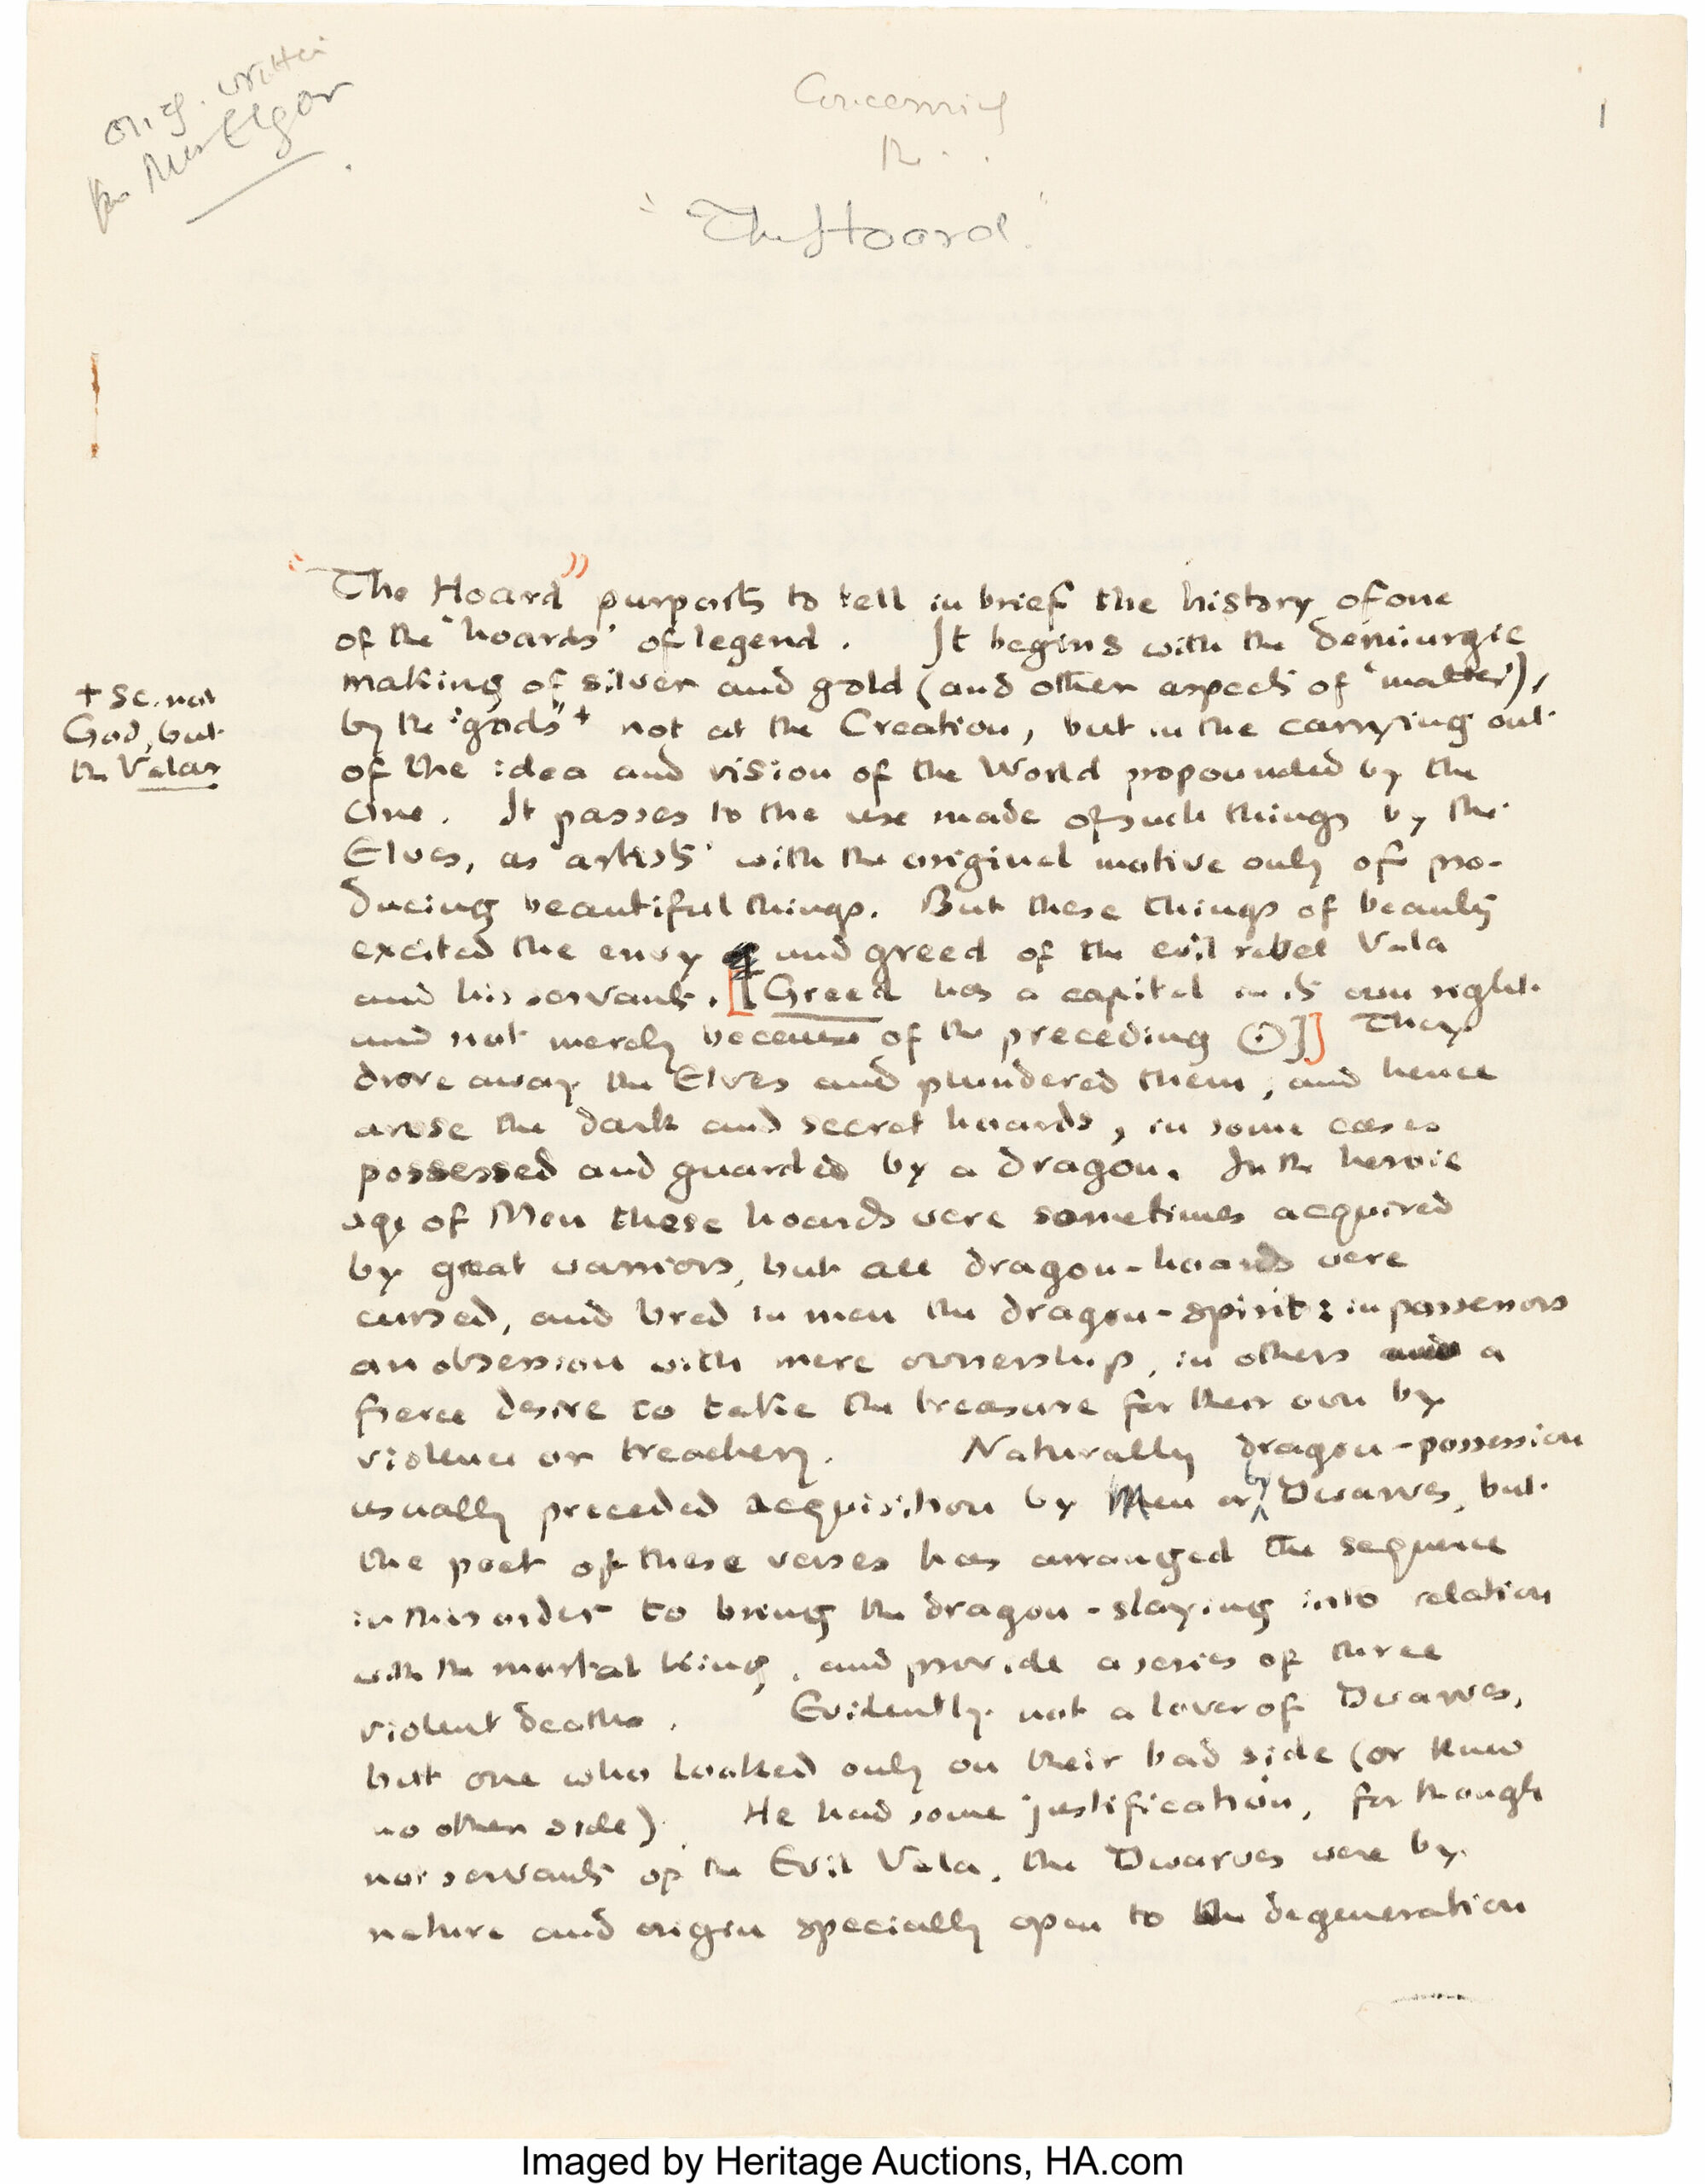 orig. written
for Mrs Elgar
Concerning
"The Hoard".
1
"The Hoard" purports to tell in brief the history of one
of the 'hoards' of legend. It begins with the demiurgic
making of silver and gold (and other aspects of 'matter'),
+ Sc. not
God, but
the Valar
by the "gods"+ not at the Creation, but in the carrying out
of the idea and vision of the World propounded by the
One. It passes to the use made of such things by the
Elves, as 'artists' with the original motive only of pro-
ducing beautiful things. But these things of beauty
excited the envy and greed of the evil rebel Vala
and his servants. [[Greed has a capital in its own right
and not merely because of the preceding ⊙]] They
drove away the Elves and plundered them, and hence
arose the dark and secret hoards, in some cases
possessed and guarded by a dragon. In the heroic
age of Men these hoards were sometimes acquired
by great warriors, but all dragon-hoards were
cursed, and bred in men the dragon-spirit: in possessors
an obsession with mere ownership, in others a
fierce desire to take the treasure for their own by
violence or treachery. Naturally dragon-possession
usually preceded acquisition by Men or by Dwarves, but
the poet of these verses has arranged the sequence
in this order to bring the dragon-slaying into relation
with the mortal king, and provide a series of three
violent deaths. Evidently not a lover of Dwarves,
but one who looked only on their bad side (or knew
no other side). He had some justification, for though
not servants of the Evil Vala, the Dwarves were by
nature and origin specially open to the degeneration
Imaged by Heritage Auctions, HA.com